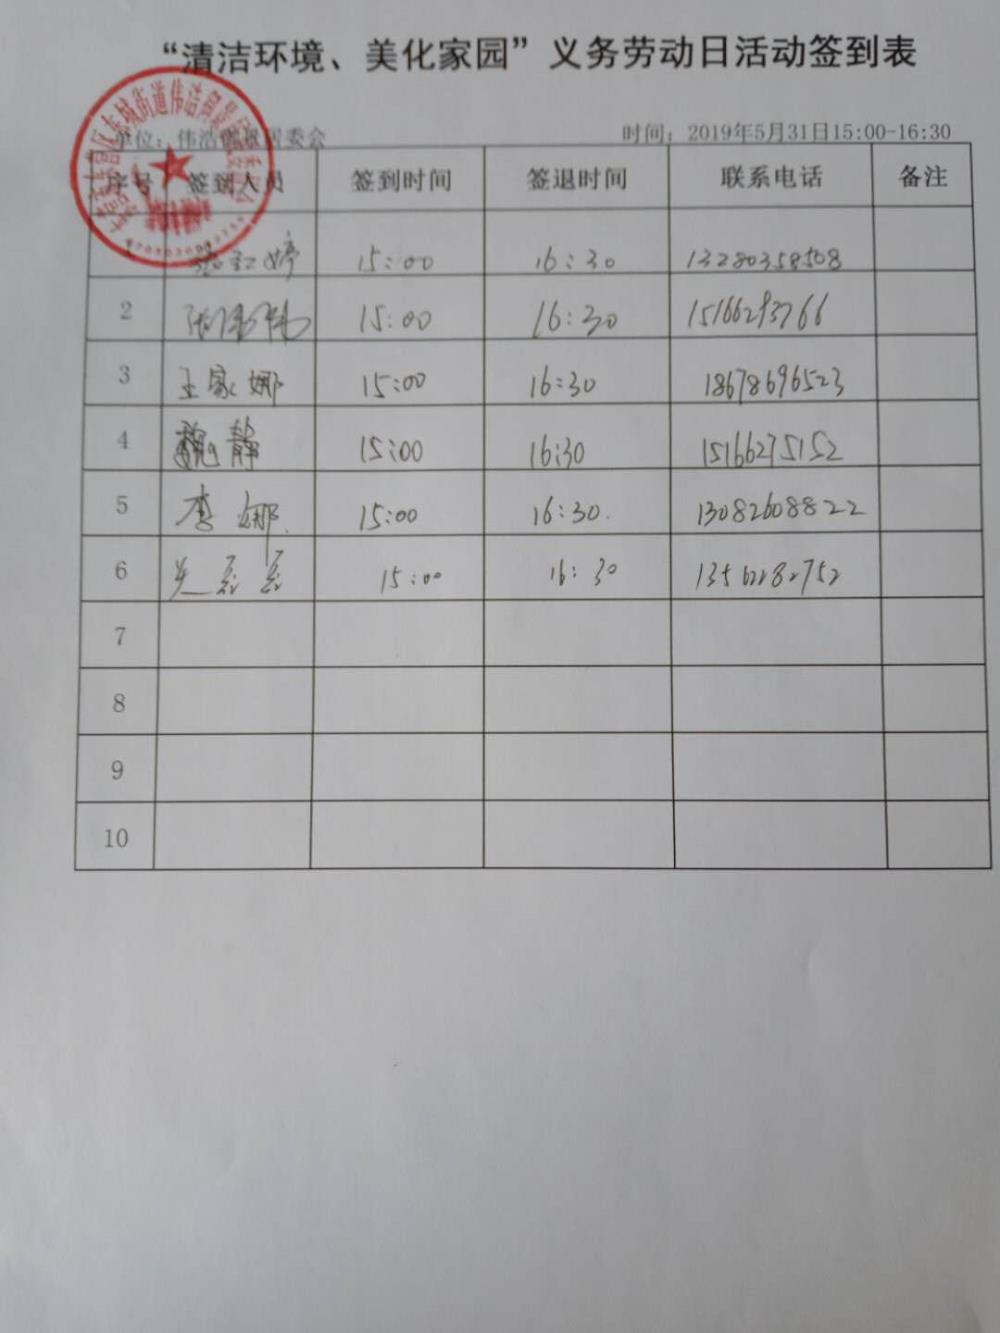 “清洁环境、美化家园”义务劳动日活动签到表
单位：伟浩御景居委会 时间：2019年5月31日15:00-16:30
序号 签到人员 签到时间 签退时间 联系电话 备注
15:00 16:30 13280358508
2 15:00 16:30 15166293766
3 王家娜 15:00 16:30 18678696523
4 魏静 15:00 16:30 15166275152
5 李娜 15:00 16:30. 13082608822
6 15:00 16:30 13562282752
7
8
9
10